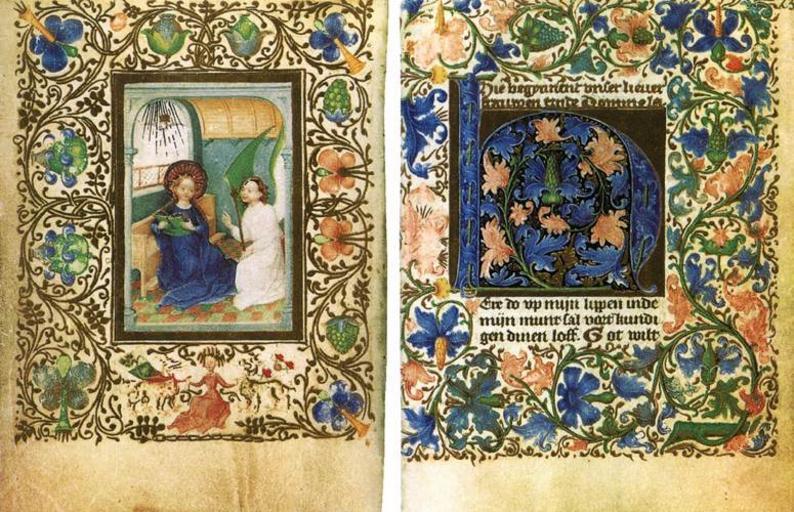 Hie begynnent vnser lieuer
vrauwen Domine la
HEre do vp mijn lipen inde
mijn munt sal vort kundi
gen dinen loff. Got wilt